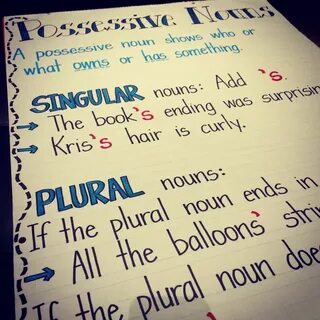 Possessive Nouns
A possessive noun shows who or
what owns or has something.
SINGULAR nouns: Add 's.
The book's ending was surprisin
Kris's hair is curly.
PLURAL nouns:
If the plural noun ends in
All the balloons' stri
If the plural noun doe